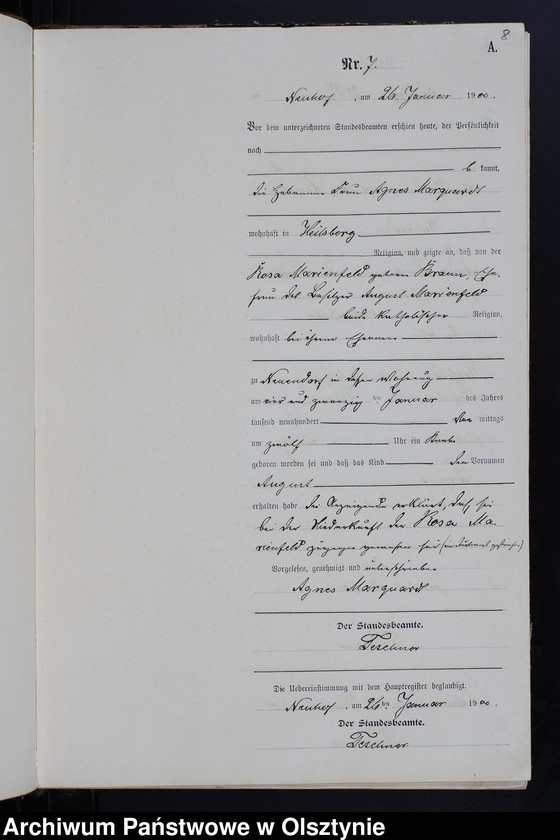 8
A.
Nr. 7.
Neuhof, am 26 Januar 1900.
Vor dem unterzeichneten Standesbeamten erschien heute, der Persönlichkeit
nach
be kannt,
die Hebamme Frau Agnes Marquardt
wohnhaft in Heilsberg
Religion, und zeigte an, daß von der
Rosa Marienfeld geborene Braun, Ehe-
frau des Besitzer August Marienfeld
beide katholischer Religion,
wohnhaft bei ihrem Ehemann
zu Neuendorf in dessen Wohnung
am vier und zwanzig ten Januar des Jahres
tausend neunhundert Vor mittags
um zwölf Uhr ein Knabe
geboren worden sei und daß das Kind den Vornamen
August
erhalten habe die Anzeigende erklärt, daß sie
bei der Niederkunft der Rosa Ma-
rienfeld zugegen gewesen sei
Vorgelesen, genehmigt und unterschrieben
Agnes Marquardt
Der Standesbeamte.
Teschner
Die Uebereinstimmung mit dem Hauptregister beglaubigt.
Neuhof, am 26 ten Januar 1900.
Der Standesbeamte.
Teschner
Archiwum Państwowe w Olsztynie